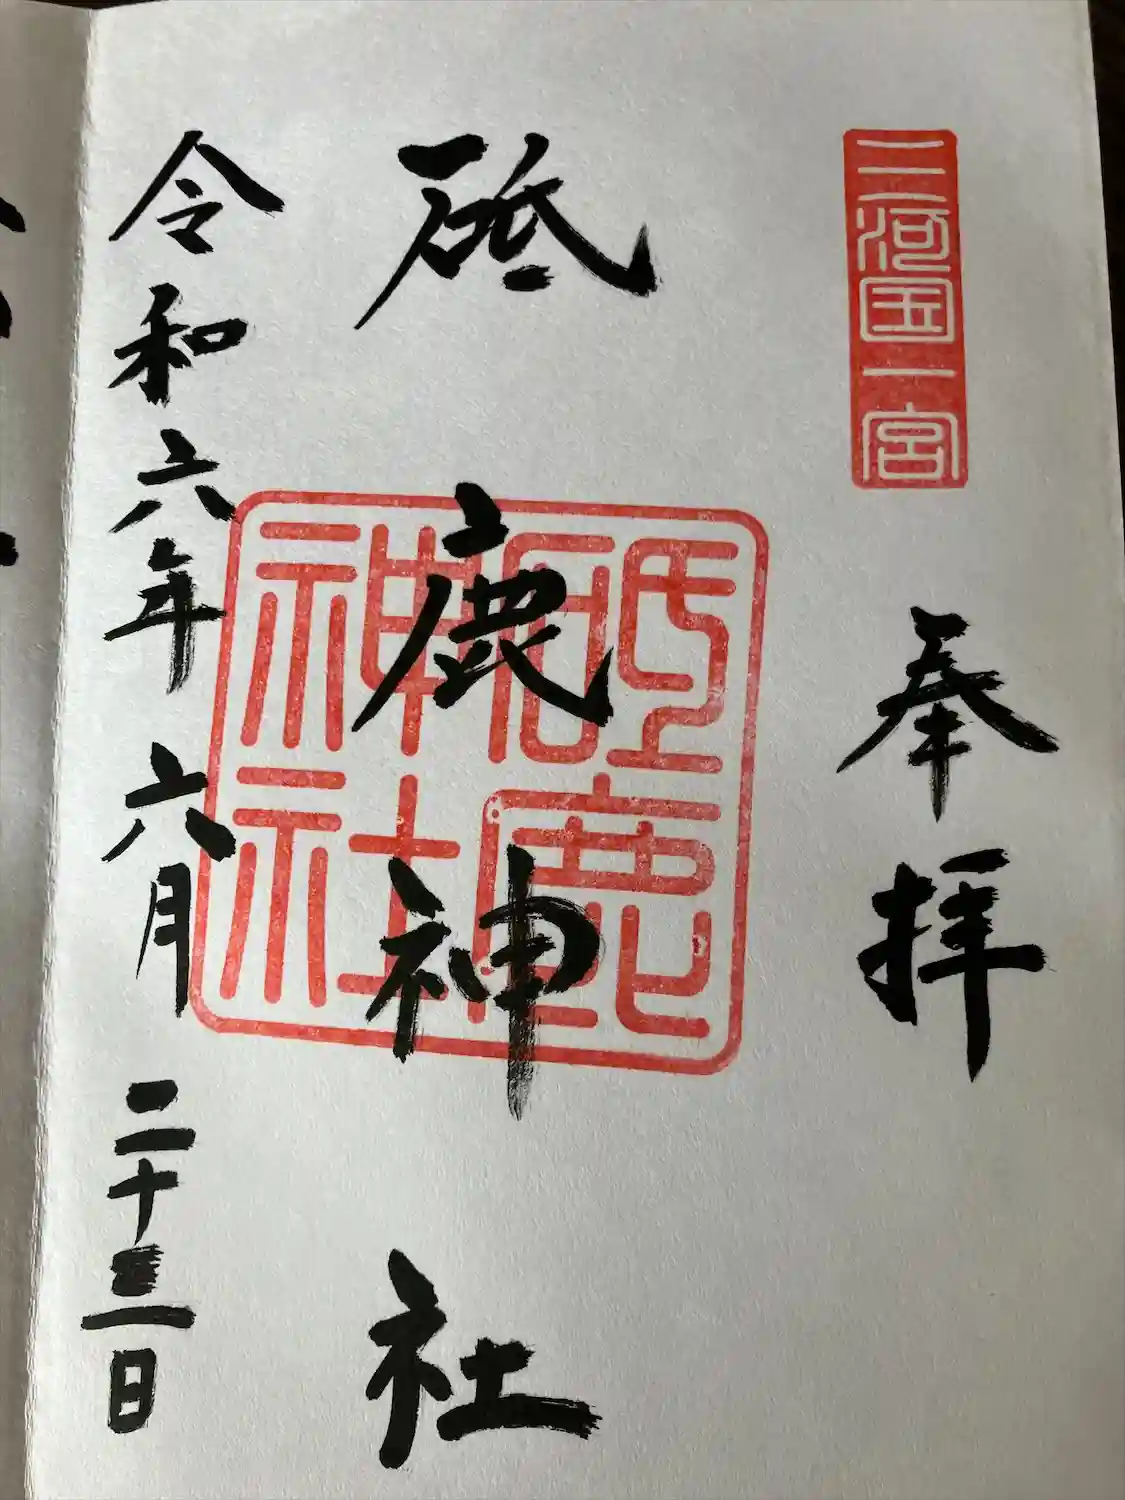 三河国一宮
奉拝
砥鹿神社
砥鹿
神社
令和六年六月二十三日